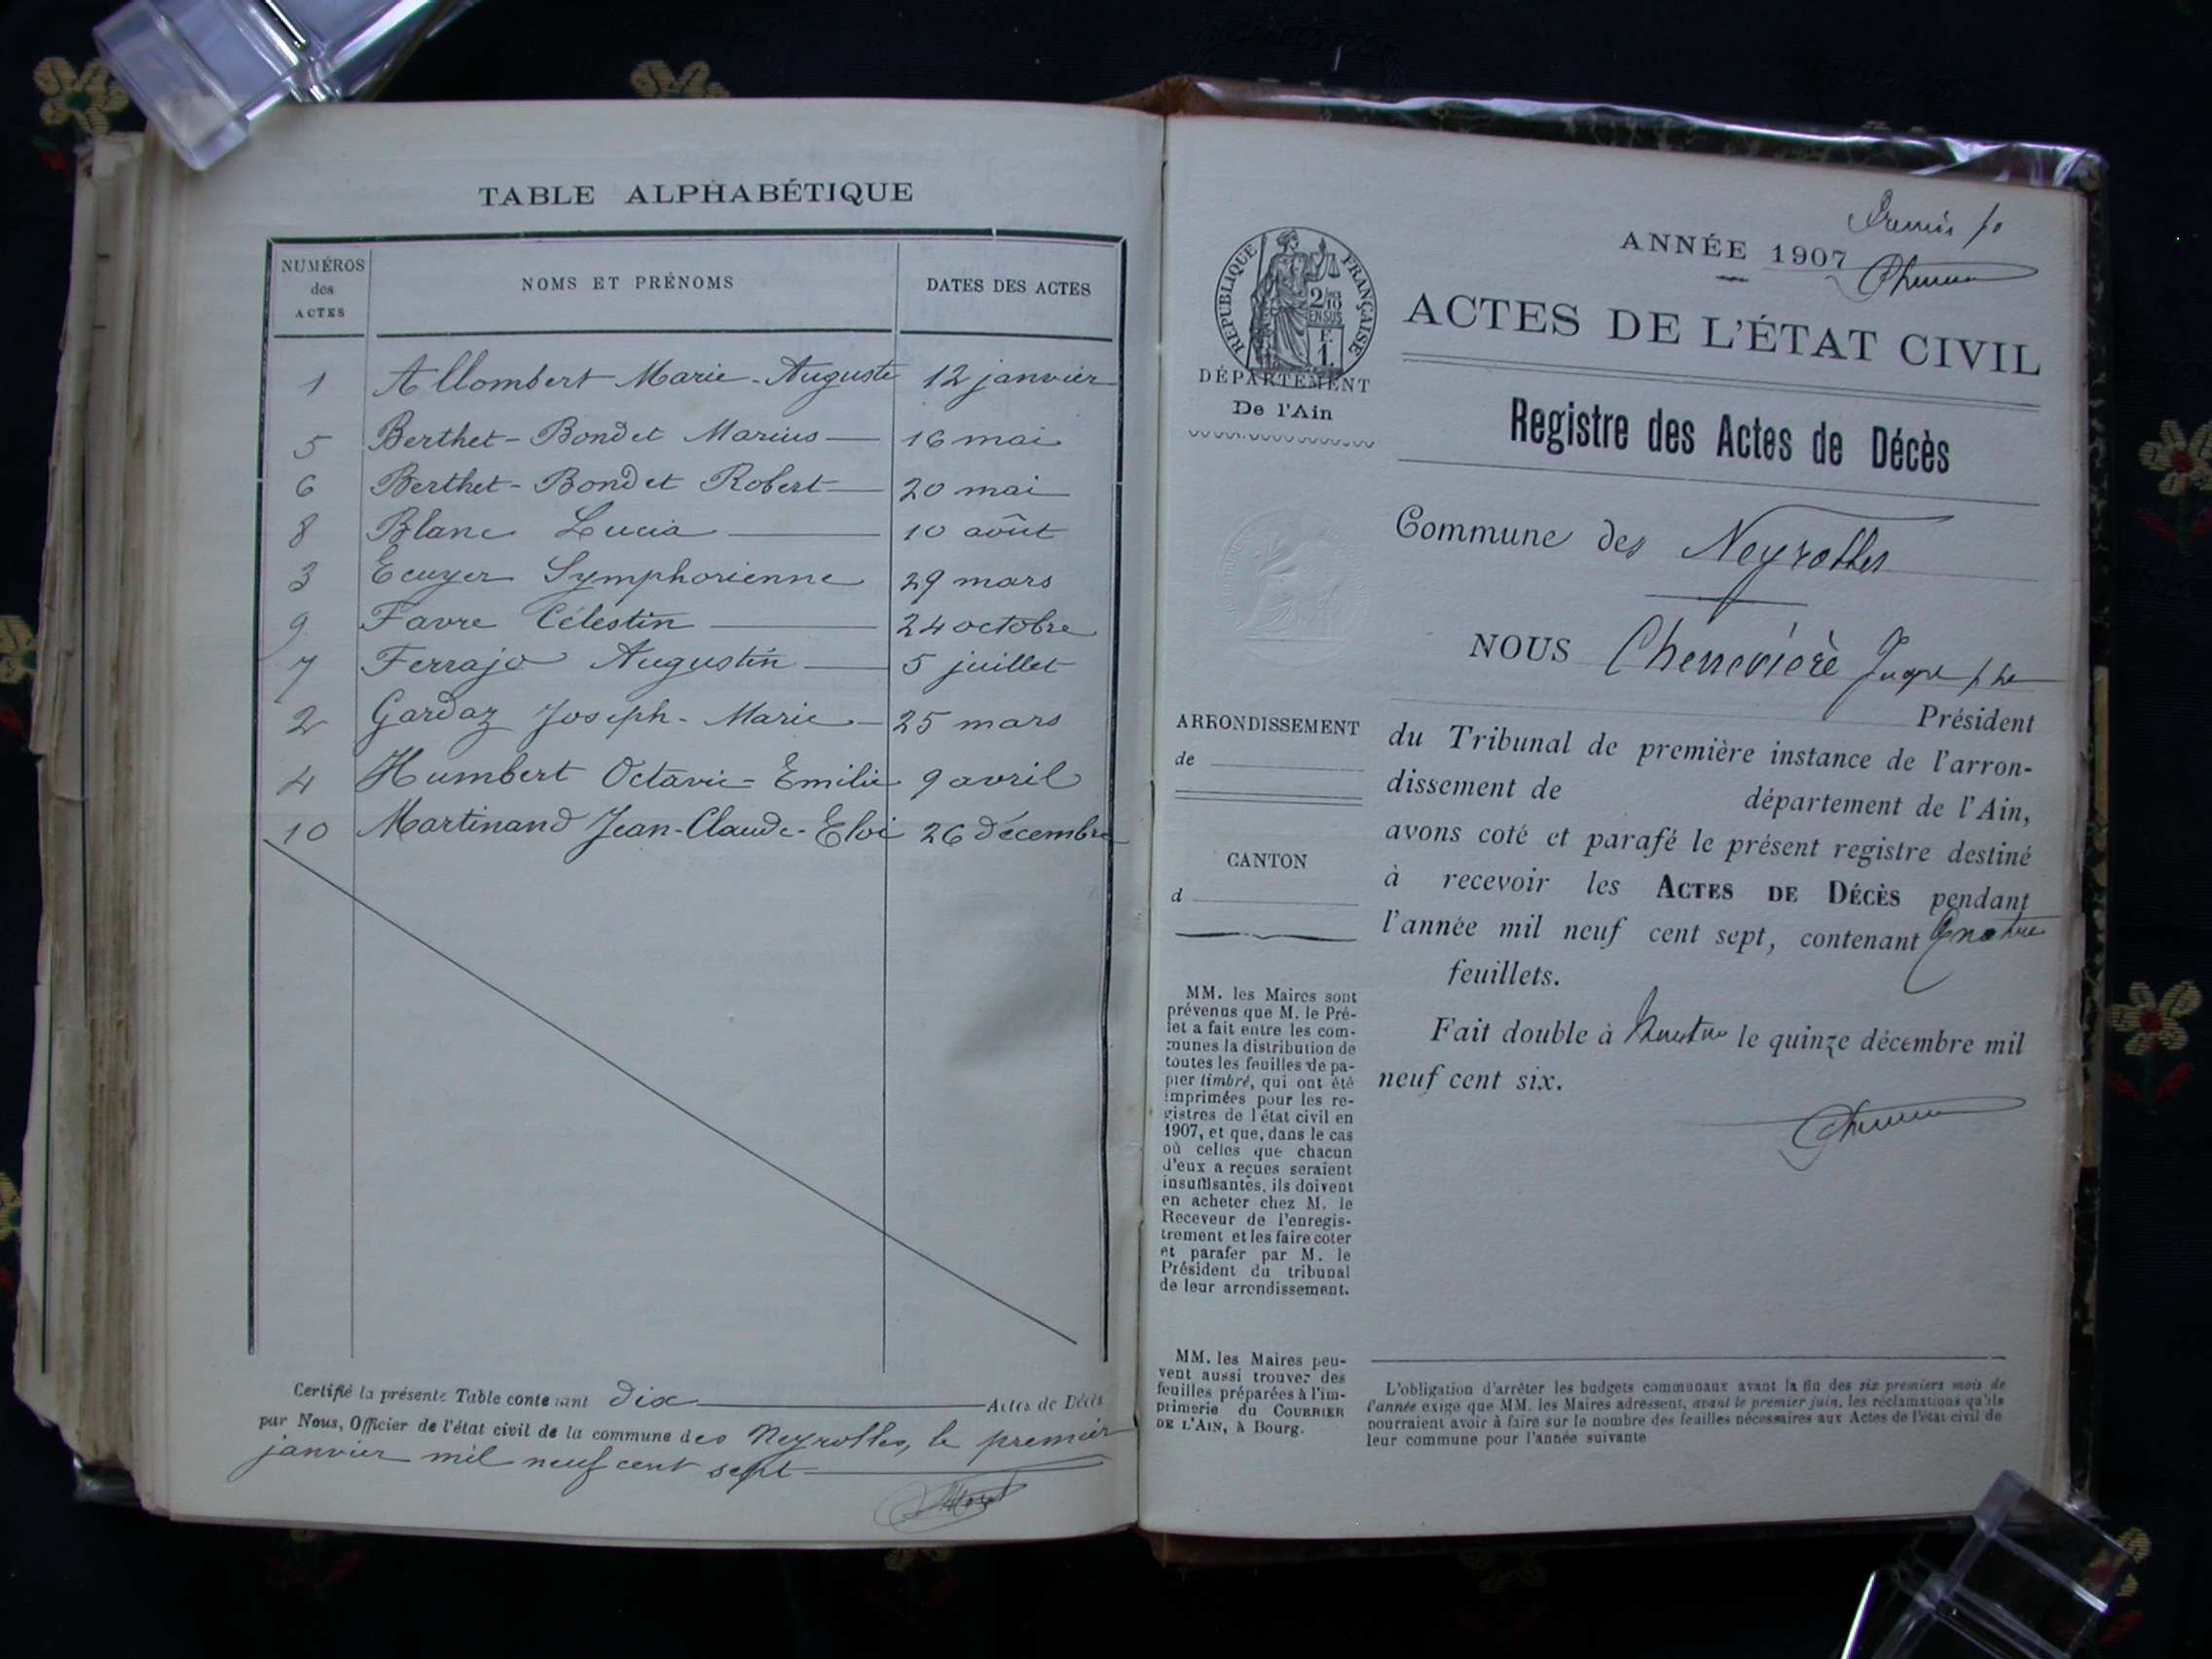 TABLE ALPHABÉTIQUE
NUMÉROS des ACTES NOMS ET PRÉNOMS DATES DES ACTES
1 Allombert Marie-Auguste 12 janvier
5 Berthet-Bondet Marius 16 mai
6 Berthet-Bondet Robert 20 mai
8 Blanc Lucia 10 août
3 Ecuyer Symphorienne 29 mars
9 Favre Célestin 24 octobre
7 Ferrajo Augustin 5 juillet
2 Gardaz Joseph-Marie 25 mars
4 Humbert Octavie-Emilie 9 avril
10 Martinand Jean-Claude-Eloi 26 décembre
Certifié la présente Table contenant dix Actes de Décès
par Nous, Officier de l'état civil de la commune des Neyrolles, le premier
janvier mil neuf cent sept
ANNÉE 1907
RÉPUBLIQUE FRANÇAISE
2/10 EN SUS
F. 1.
DÉPARTEMENT
De l'Ain
ACTES DE L'ÉTAT CIVIL
Registre des Actes de Décès
Commune des Neyrolles
NOUS Chenevière
Président
du Tribunal de première instance de l'arron-
dissement de département de l'Ain,
avons coté et parafé le présent registre destiné
à recevoir les ACTES DE DÉCÈS pendant
l'année mil neuf cent sept, contenant Quatre
feuillets.
Fait double à Nantua le quinze décembre mil
neuf cent six.
ARRONDISSEMENT
de
CANTON
d
MM. les Maires sont
prévenus que M. le Pré-
fet a fait entre les com-
munes la distribution de
toutes les feuilles de pa-
pier timbré, qui ont été
imprimées pour les re-
gistres de l'état civil en
1907, et que, dans le cas
où celles que chacun
d'eux a reçues seraient
insuffisantes, ils doivent
en acheter chez M. le
Receveur de l'enregis-
trement et les faire coter
et parafer par M. le
Président du tribunal
de leur arrondissement.
MM. les Maires peu-
vent aussi trouver des
feuilles préparées à l'im-
primerie du COURRIER
DE L'AIN, à Bourg.
L'obligation d'arrêter les budgets communaux avant la fin des six premiers mois de
l'année exige que MM. les Maires adressent, avant le premier juin, les réclamations qu'ils
pourraient avoir à faire sur le nombre des feuilles nécessaires aux Actes de l'état civil de
leur commune pour l'année suivante